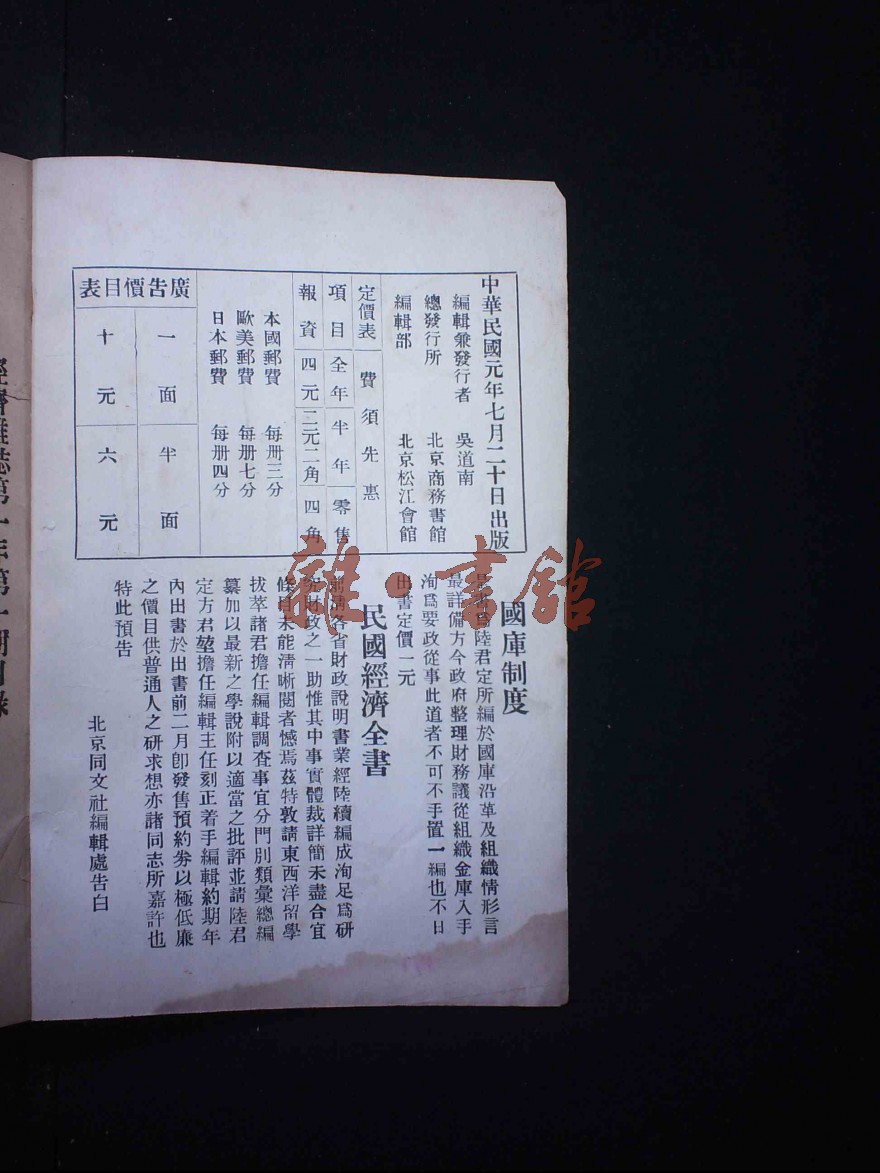 中華民國元年七月二十日出版
編輯兼發行者 吳道南
總發行所 北京商務書館
編輯部 北京松江會館
定價表 費須先惠
項目 全年 半年 零售
報資 四元 二元二角 四角
本國郵費 每册三分
歐美郵費 每册七分
日本郵費 每册四分
廣告價目表
一面 半面
十元 六元
國庫制度
是書爲陸君定所編於國庫沿革及組織情形言
最詳備方今政府整理財務議從組織金庫入手
洵爲要政從事此道者不可不手置一編也不日
出書定價一元
民國經濟全書
前清各省財政說明書業經陸續編成洵足爲研
究財政之一助惟其中事實體裁詳簡未盡合宜
條目未能清晰閱者憾焉茲特敦請東西洋留學
拔萃諸君擔任編輯調查事宜分門別類彙總編
纂加以最新之學說附以適當之批評並請陸君
定方君堃擔任編輯主任刻正着手編輯約期年
內出書於出書前二月卽發售預約劵以極低廉
之價目供普通人之研求想亦諸同志所嘉許也
特此預告
北京同文社編輯處告白
雜·書館